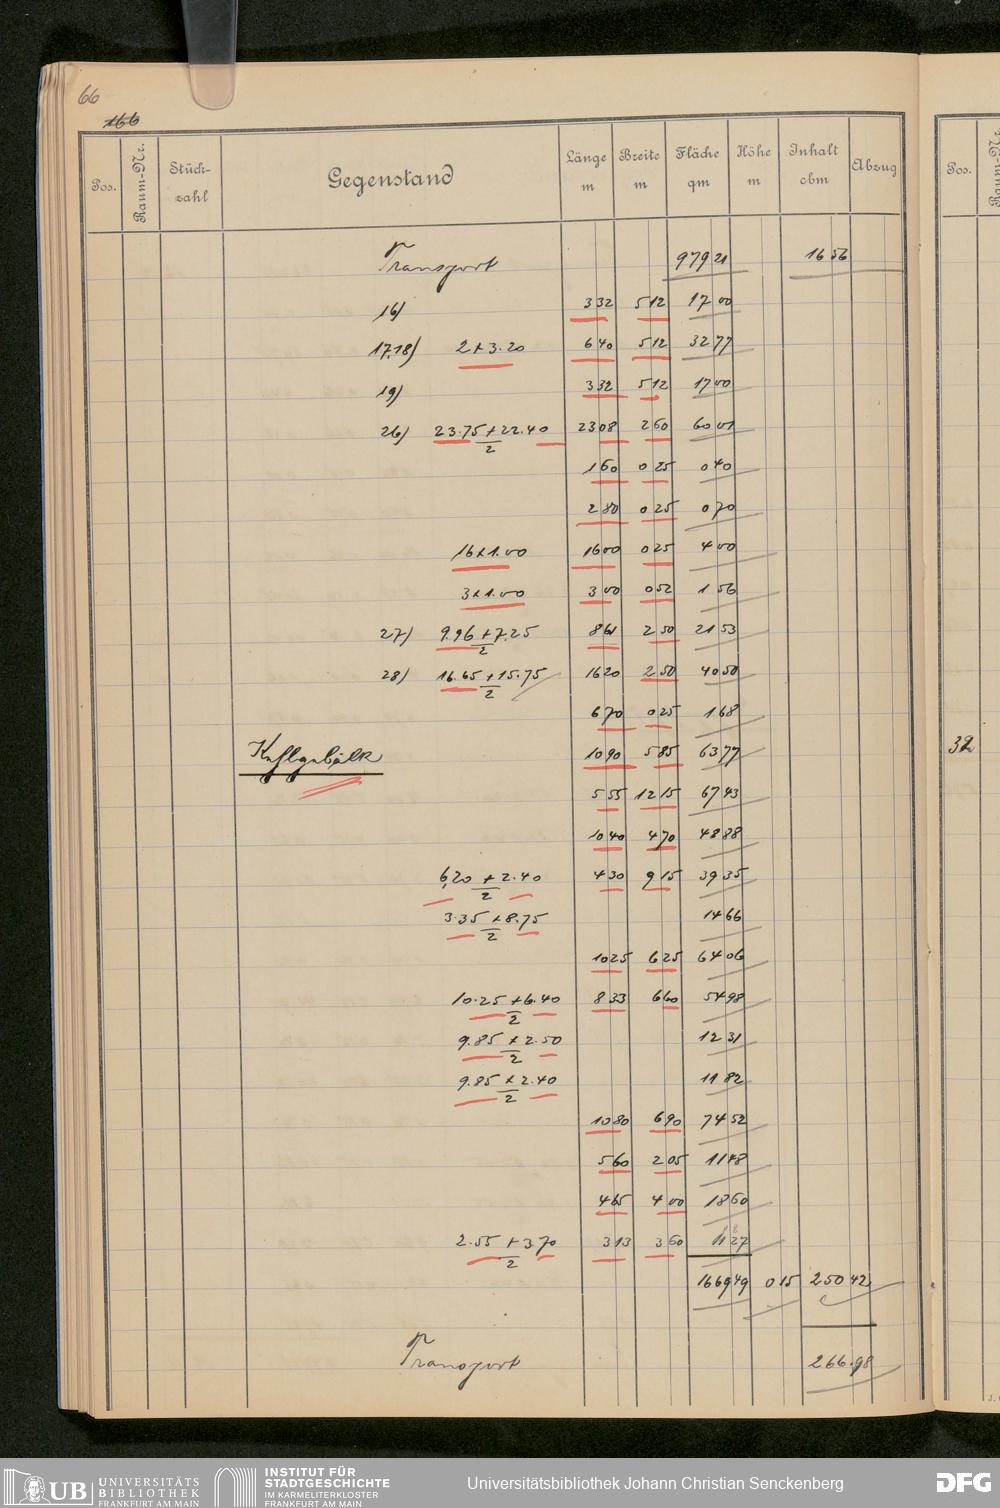 66
166
Pos. Raum-Nr. Stück-zahl Gegenstand Länge m Breite m Fläche qm Höhe m Inhalt cbm Abzug Pos.
Transport 979 21 16 56
16) 3 32 5 12 17 00
17,18) 2 x 3.20 6 40 5 12 32 77
19) 3 32 5 12 17 00
26) 23.75 + 22.40 / 2 23 08 2 60 60 01
1 60 0 25 0 40
2 80 0 25 0 70
16 x 1.00 16 00 0 25 4 00
3 x 1.00 3 00 0 52 1 56
27) 9.96 + 7.25 / 2 8 61 2 50 21 53
28) 16.65 + 15.75 / 2 16 20 2 50 40 50
6 70 0 25 1 68
Kehlgebälk 10 90 5 85 63 77
32
5 55 12 15 67 43
10 40 4 70 48 88
6,20 + 2.40 / 2 4 30 9 15 39 35
3.35 x 8.75 / 2 14 66
10 25 6 25 64 06
10.25 + 6.40 / 2 8 33 6 60 54 98
9.85 x 2.50 / 2 12 31
9.85 x 2.40 / 2 11 82
10 80 6 90 74 52
5 60 2 05 11 48
4 65 4 00 18 60
2.55 + 3.70 / 2 3 13 3 60 11 27
1669 49 0 15 250 42
Transport 266.98
UB UNIVERSITÄTS BIBLIOTHEK FRANKFURT AM MAIN
INSTITUT FÜR STADTGESCHICHTE IM KARMELITERKLOSTER FRANKFURT AM MAIN
Universitätsbibliothek Johann Christian Senckenberg
DFG